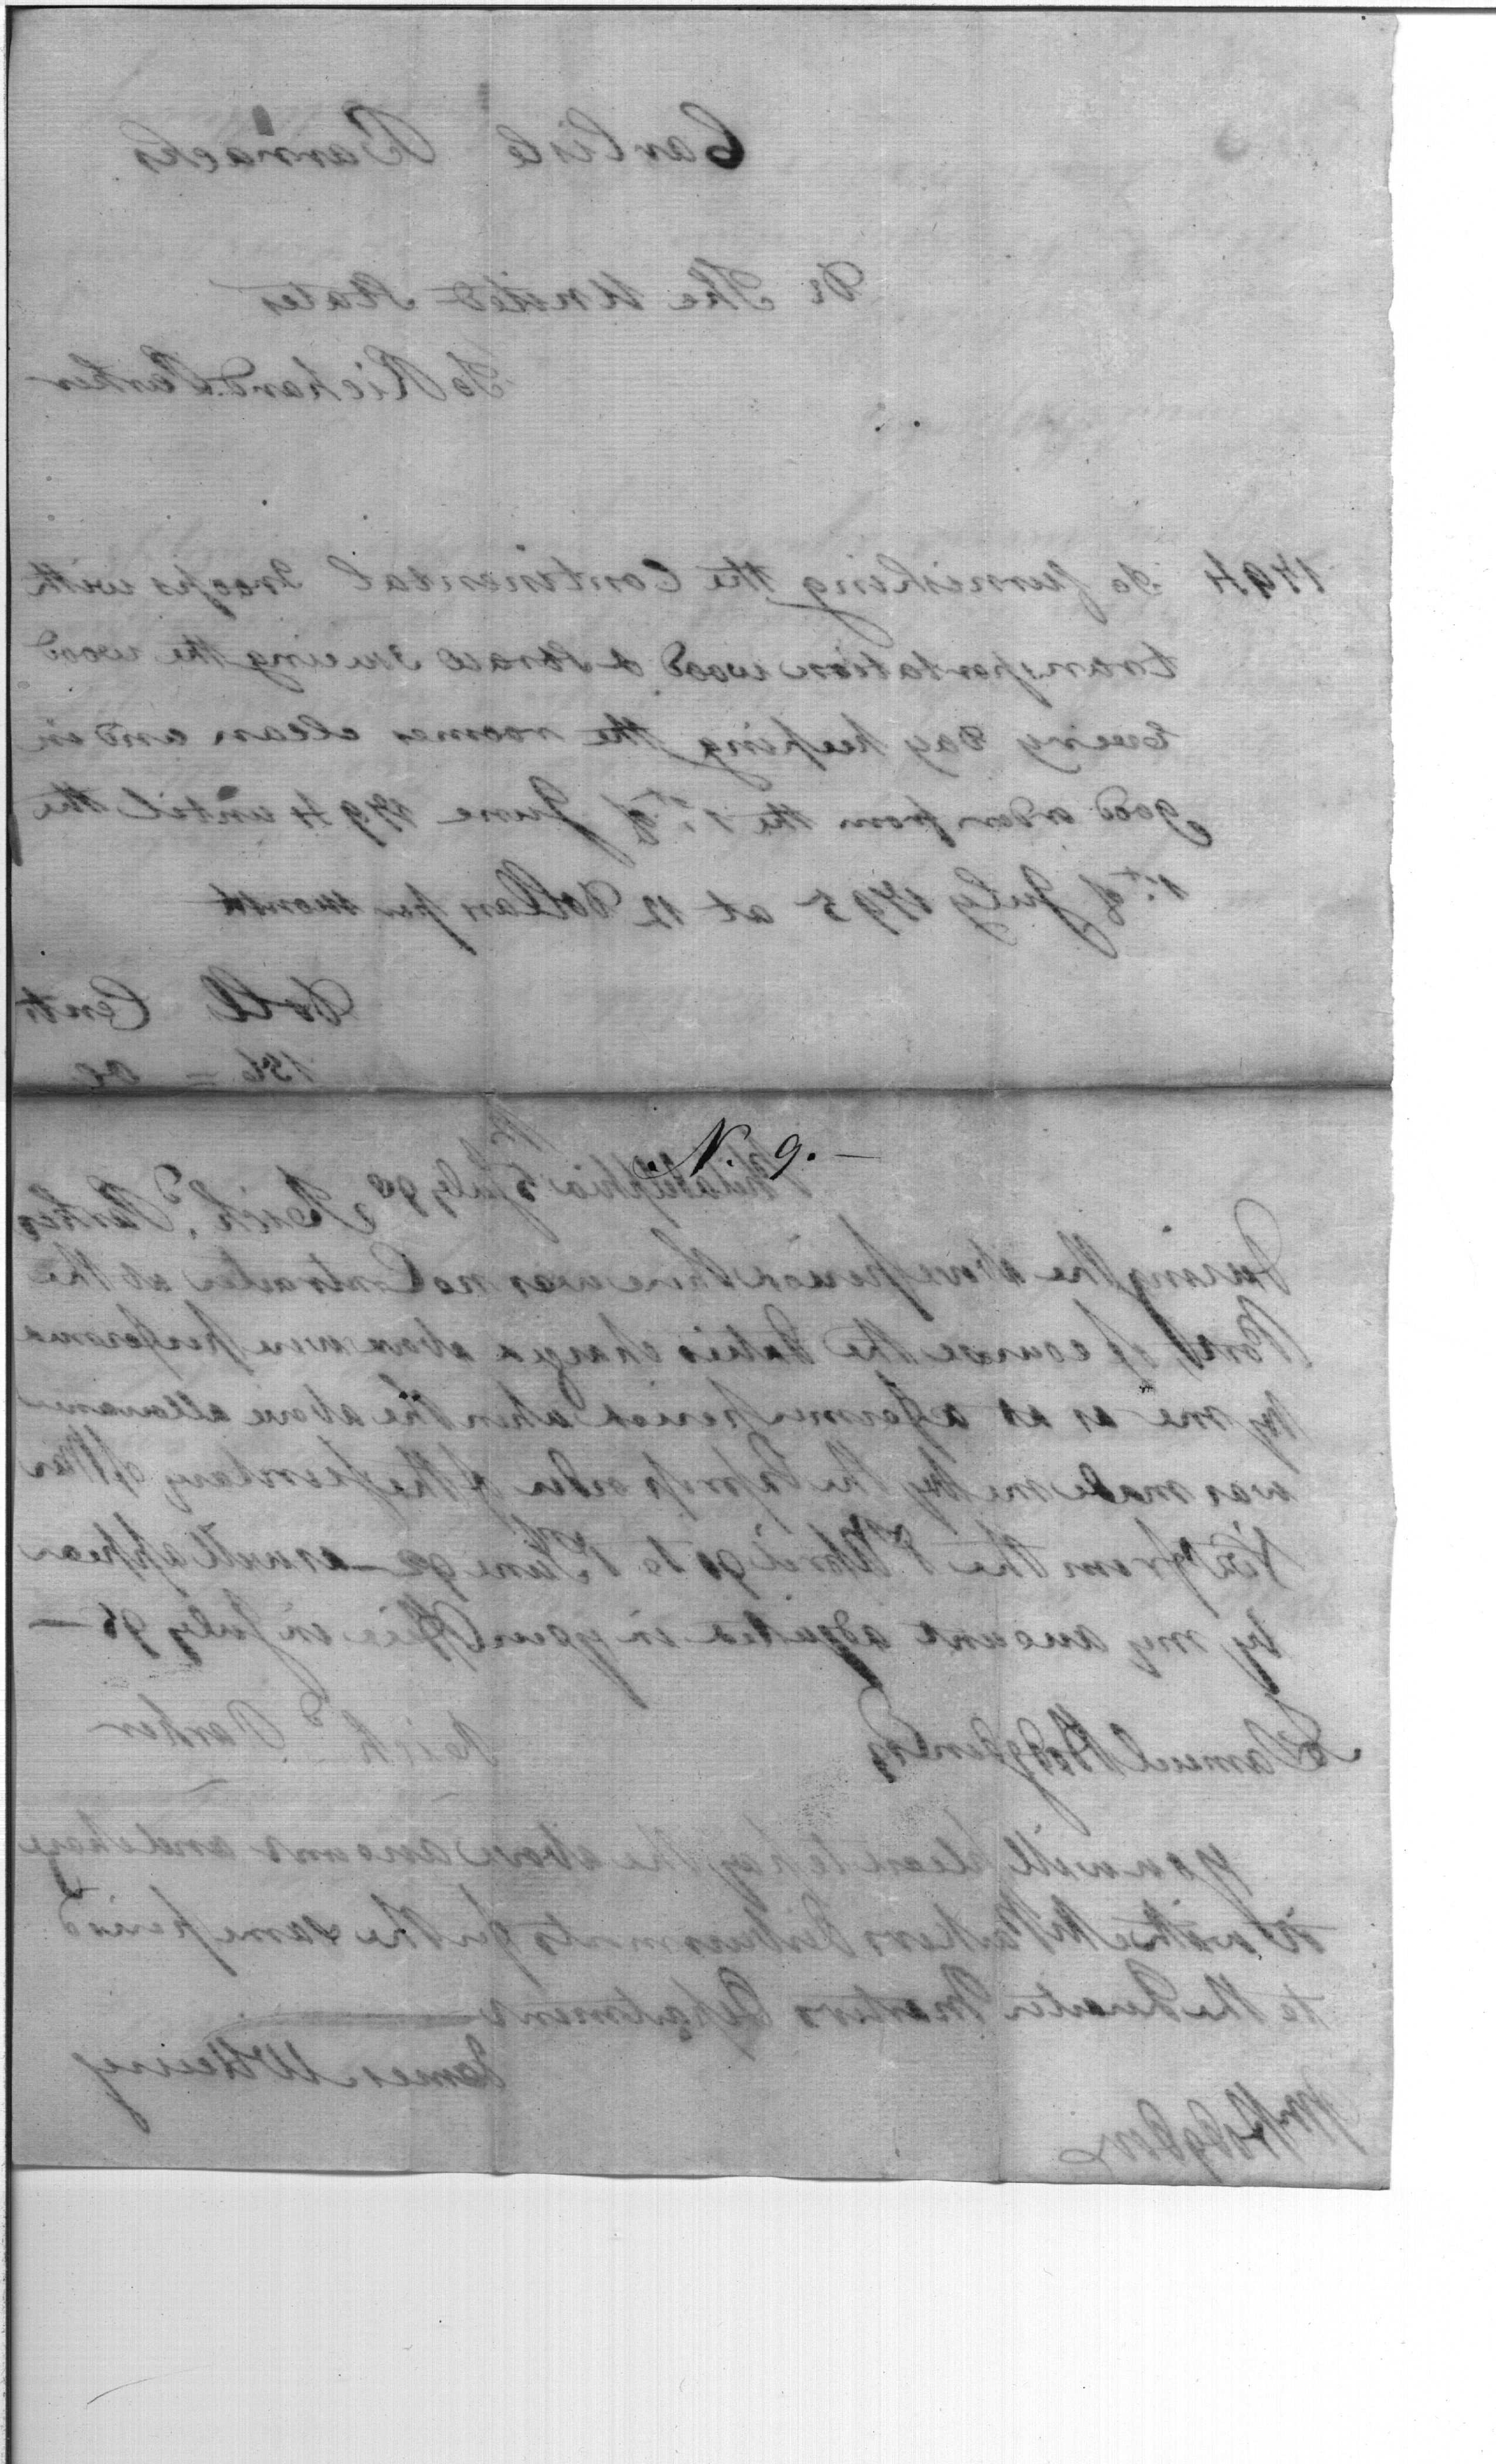 Carlisle Barracks
Dr The United States
To Richard Parker
1794 To furnishing the Continental Troops with
transportation wood & straw Issueing the wood
Every day keeping the roomes clean and in
good order from the 1st of June 1794 until the
1st of July 1795 at 12 Dollars per month
Doll Cents
156 = 00
N. 9.—
Philadelphia July 98
Richd. Parker
During the above period there was no Contractor at the
Post, of course the duties charged above were performed
by me as at a former period when the above allowance
was made me by the express order of the Secretary of War
Viz from the 1st April to 1st June as will appear
by my account adjusted in your Office in July 95 —
Richd. Parker
To Samuel Hodgdon Esq
You will please to pay the above account and charge
it with Mr Parkers disbursements for the same period
to the Quarter Masters Department
James McHenry
Mr Hodgdon